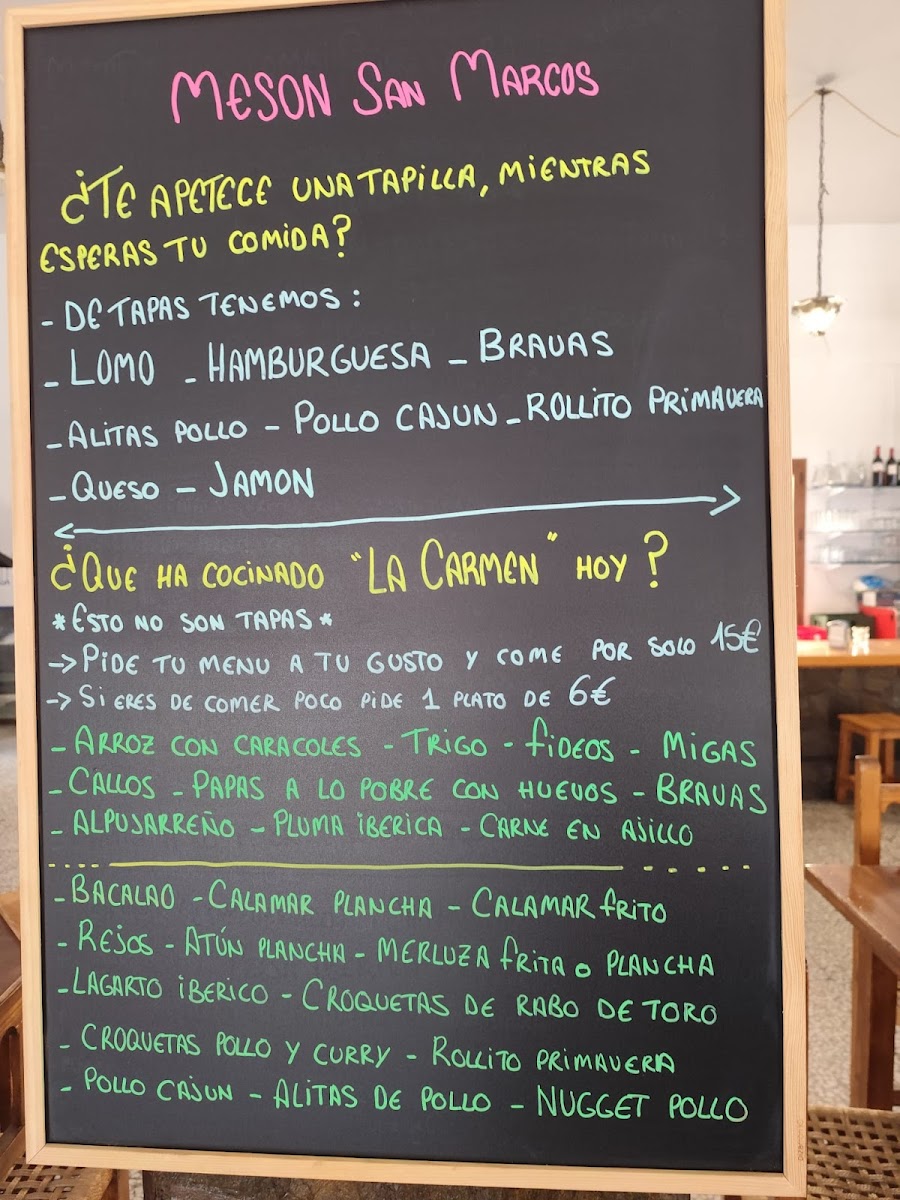 MESON SAN MARCOS
¿TE APETECE UNA TAPILLA, MIENTRAS
ESPERAS TU COMIDA?
- DE TAPAS TENEMOS:
- LOMO - HAMBURGUESA - BRAVAS
- ALITAS POLLO - POLLO CAJUN - ROLLITO PRIMAVERA
- QUESO - JAMON
¿QUE HA COCINADO "LA CARMEN" HOY?
*ESTO NO SON TAPAS*
-> PIDE TU MENU A TU GUSTO Y COME POR SOLO 15€
-> SI ERES DE COMER POCO PIDE 1 PLATO DE 6€
- ARROZ CON CARACOLES - TRIGO - FIDEOS - MIGAS
- CALLOS - PAPAS A LO POBRE CON HUEVOS - BRAVAS
- ALPUJARREÑO - PLUMA IBERICA - CARNE EN AJILLO
- BACALAO - CALAMAR PLANCHA - CALAMAR FRITO
- REJOS - ATÚN PLANCHA - MERLUZA FRITA O PLANCHA
- LAGARTO IBERICO - CROQUETAS DE RABO DE TORO
- CROQUETAS POLLO Y CURRY - ROLLITO PRIMAVERA
- POLLO CAJUN - ALITAS DE POLLO - NUGGET POLLO